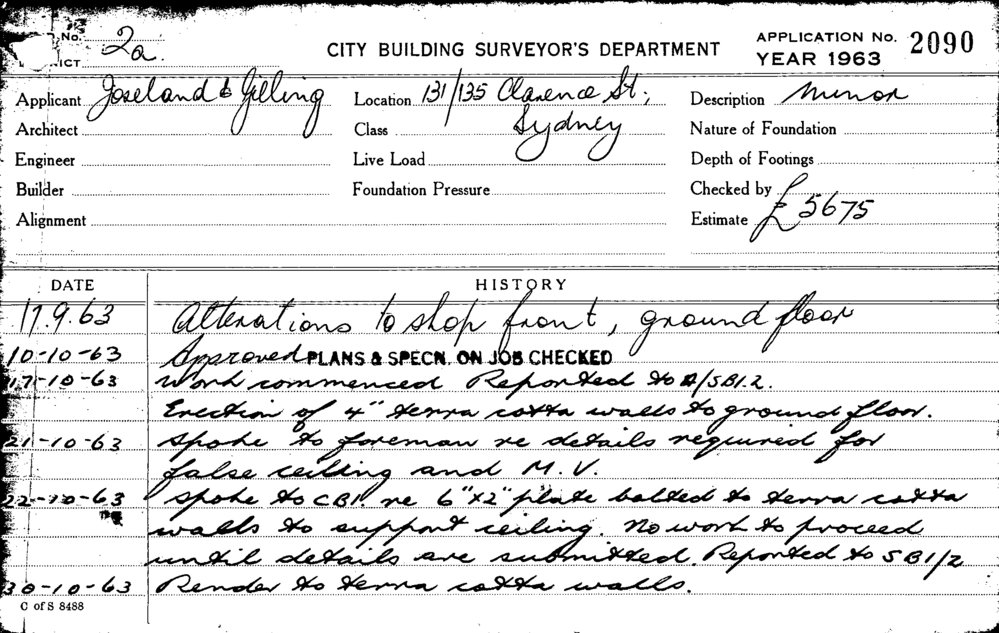 No. 2a.
ICT
CITY BUILDING SURVEYOR'S DEPARTMENT
APPLICATION No. 2090
YEAR 1963
Applicant Joseland & Gilling
Location 131/135 Clarence St;
Sydney
Description Minor
Architect
Class
Nature of Foundation
Engineer
Live Load
Depth of Footings
Builder
Foundation Pressure
Checked by
Alignment
Estimate £5675
DATE HISTORY
17.9.63 Alterations to shop front, ground floor
10-10-63 Approved PLANS & SPECN. ON JOB CHECKED
17-10-63 Work commenced Reported to A/SB1.2.
Erection of 4" terra cotta walls to ground floor.
21-10-63 Spoke to foreman re details required for
false ceilling and M.V.
22-10-63 Spoke to CB1. re 6"x2" plate bolted to terra cotta
walls to support ceiling. No work to proceed
until details are submitted. Reported to SB1/2
30-10-63 Render to terra cotta walls.
C of S 8488